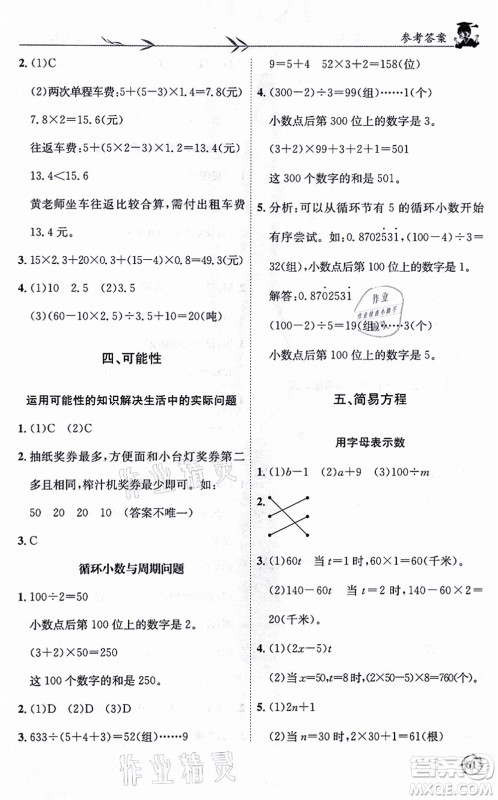 参考答案
2. (1)C
(2)两次单程车费:5+(5-3)×1.4=7.8(元)
7.8×2=15.6(元)
往返车费:5+(5×2-3)×1.2=13.4(元)
13.4<15.6
黄老师坐车往返比较合算,需付车费
13.4元。
3. 15×2.3+20×0.3+(15-11)×2.2=49.3(元)
4. (1)10 2.5 (2)20
(3)(60-10×2.5)÷3.5+10=20(吨)
四、可能性
运用可能性的知识解决生活中的实际问题
1. (1)D (2)C
2. 抽纸奖券最多,方便面和小台灯奖券第二
多且同样多,榨汁机奖券最少。如:
50 20 20 10 (答案不唯一)
3. C
循环小数与周期问题
1. 100÷2=50
小数点后第100位上的数字是2。
(3+2)×50=250
这100个数字的和是250。
2. (1)D (2)D (3)B
3. 633÷(5+4+3)=52(组)……9
9=5+4 52×3+2=158(位)
4. (300-2)÷3=99(组)……1(个)
小数点后第300位上的数字是3。
(3+2)+99×(3+1+1)+1=501
这300个数字的和是501。
5. 分析:可以从循环节有5的循环小数开始
有序尝试。如:0.8702531 (100-4)÷3=
32(组),小数点后第100位上的数字是1。
解答:0.8702531
(100-3)÷5=19(组)……2(个)
小数点后第100位上的数字是5。
五、简易方程
用字母表示数
1. (1)b-1 (2)a+9 (3)100÷m
2.
3. (1)60t 当t=1时,60×1=60(千米)。
(2)140-60t 当t=2时,140-60×2=
20(千米)。
4. (1)(2x-5)t
(2)当x=50,t=8时,(2×50-5)×8=760(个)
5. (1)2n+1
(2)当n=30时,2×30+1=61(根)
作业精灵
作业精灵
答案圈